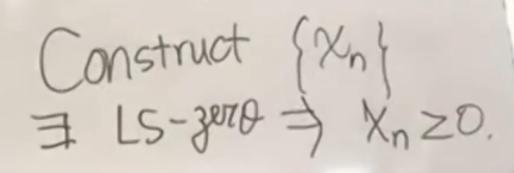 Construct {χn}
∃ LS-zero ⇒ χn ≥0.